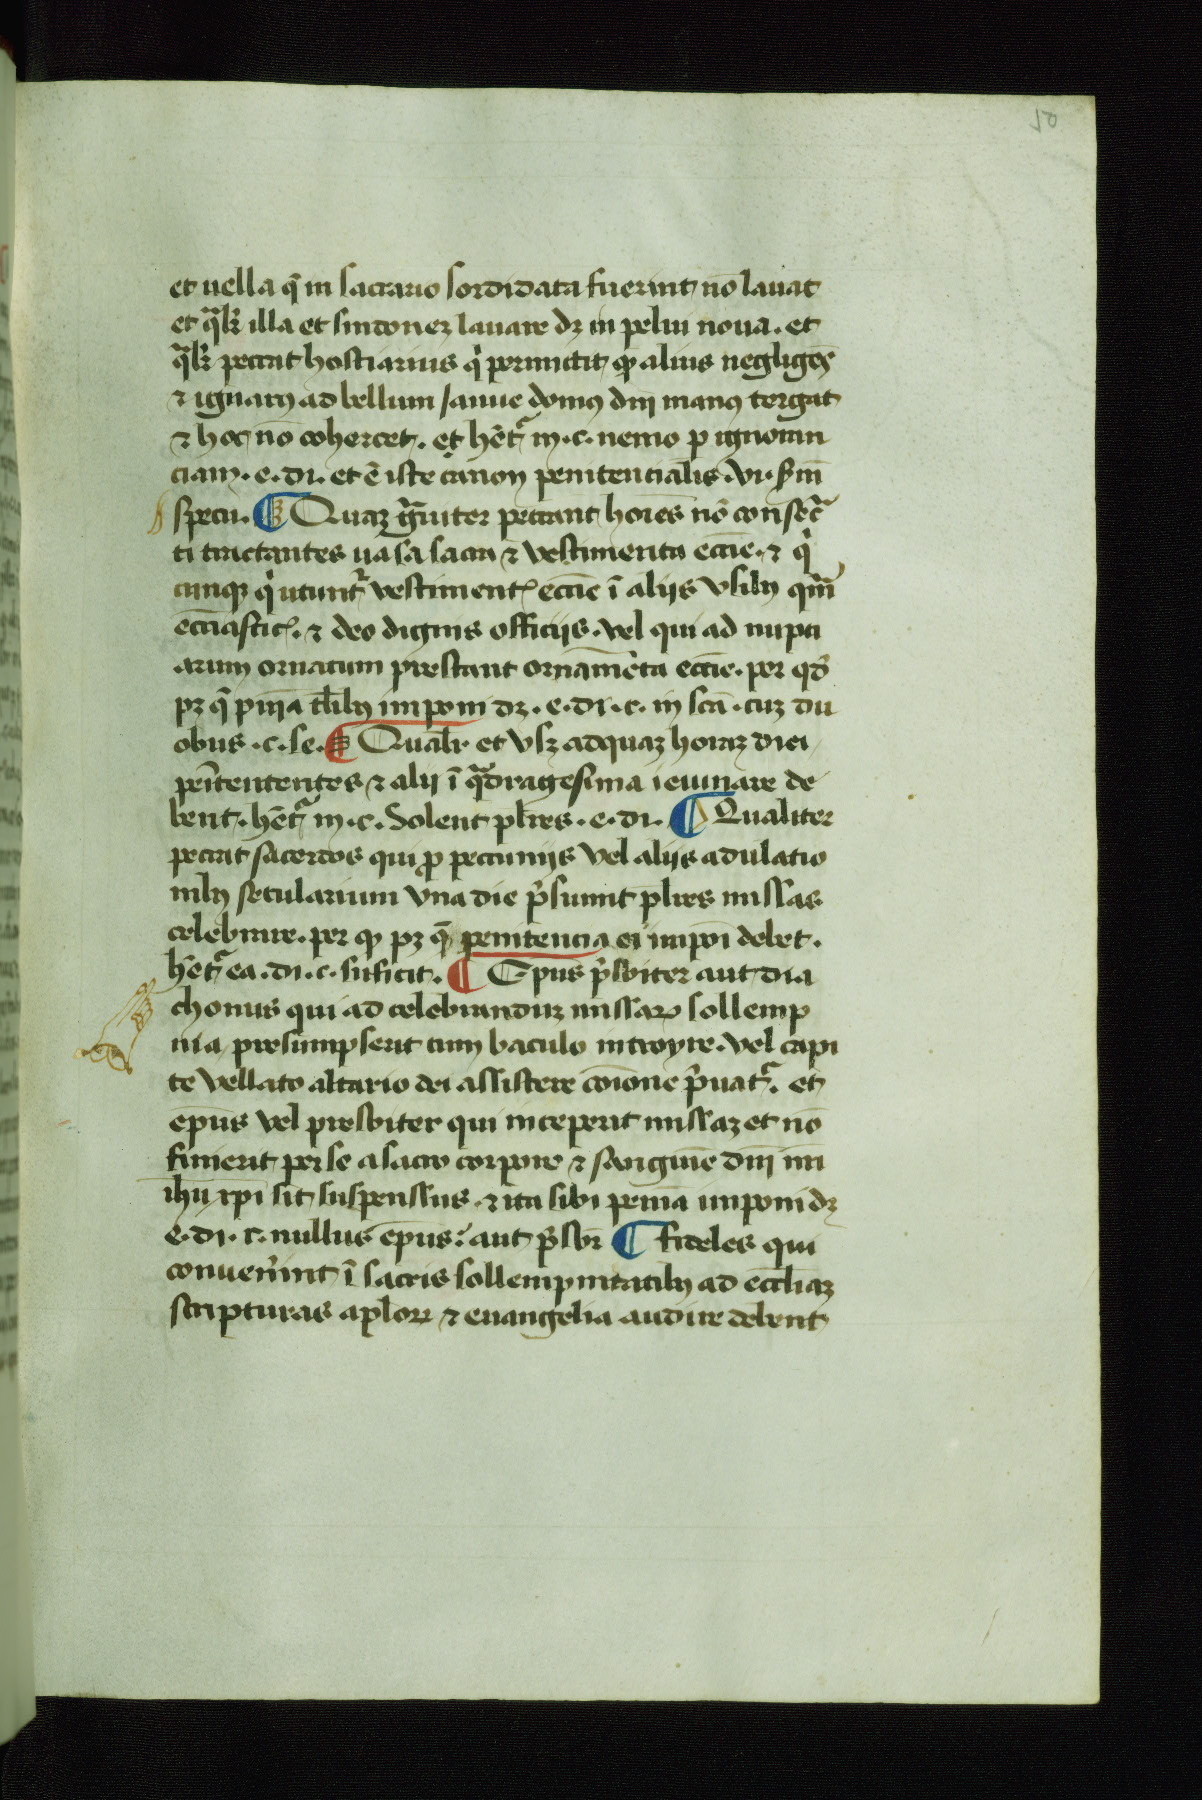 50
et uella q̄ in sacrario sordidata fuerint nō lauat
et qͣlr̄ illa et sindoneꝫ lauare dꝫ in pelui noua. et
qͣlr̄ peccat hostiarius qͥ permittit ꝙ alius negligēs
⁊ ignarꝯ ad bellum ianue domꝰ dn̄i manꝰ tergat
⁊ hoc nō cohercet. et hētͬ in .c. nemo ꝑ ignoran
ciam. e. di. et ē iste canon penitencialis .vi. scd̄m
specu. ¶ Quaꝫ gͣuiter peccant hoīes nō consecͣ
ti tractantes uasa sacra ⁊ vestimenta eccīe. ⁊ qͥ
cunqꝫ qͥ utuntͬ vestimentꝭ eccīe ī aliis vsibꝰ qͣm
ecciāsticꝭ. ⁊ deo dignis officiis. vel qui ad nupci
arum ornatum prestant ornamēta eccīe. per qd̄
pꝫ q̄ pn̄ia tālibꝰ imponi dꝫ. e. di. c. in scā. cuꝫ du
obus .c. se. ¶ Qualr̄ et vsꝫ ad quaꝫ horaꝫ diei
penitententes ⁊ alii ī qͣdragesima ieiunare de
bent. hētͬ in .c. Solent plr̄es. e. di. ¶ Qualiter
peccat sacerdos qui ꝓ peccuniis vel aliis adulatio
nibꝰ secularium vna die p̄sumit plr̄es missas
celebrare. per ꝙ pꝫ q̄ penitencia ei impōi debet.
hētͬ ea. di. c. suficit. ¶ Ep̄us p̄sbiter aut dia
chonus qui ad celebranduꝫ missarꝝ sollemp
nia presumpserit cum baculo introyre. vel capi
te vellato altario dei assistere cōione p̄uatͬ. et
ep̄us vel presbiter qui inceperit missaꝫ et nō
finierit per se a sacro corpore ⁊ sanguīe dn̄i nr̄i
ihū xp̄i sit suspenssus. ⁊ ita sibi penīa imponi dꝫ
e. di. c. nullus ep̄us. aut p̄sbr̄ ¶ fideles qui
conuenīnt ī sacris sollempnitatibꝰ ad eccl̄iaꝫ
scripturas aplōrꝝ ⁊ euangelia audire debent